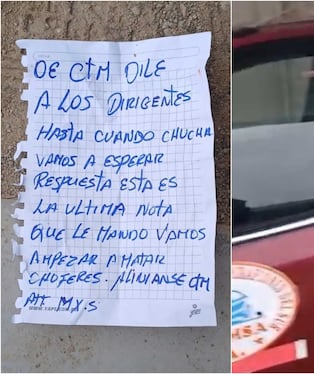 OE CTM DILE
A LOS DIRIGENTES
HASTA CUANDO CHUCHA
VAMOS A ESPERAR
RESPUESTA ESTA ES
LA ULTIMA NOTA
QUE LE MANDO VAMOS
AMPEZAR A MATAR
CHOFERES. ALINIANSE CTM
ATT. M.Y.S